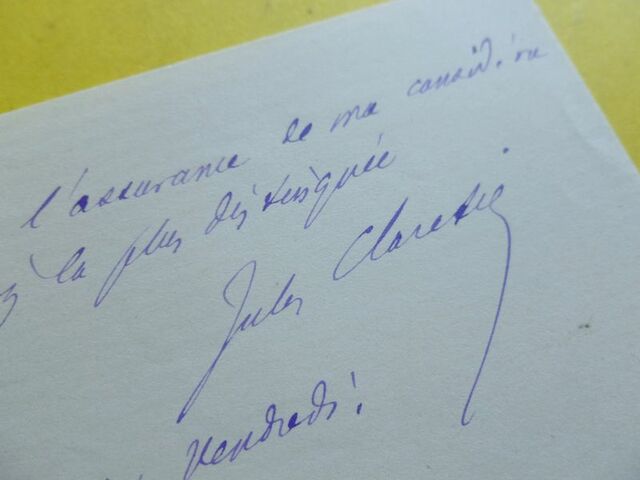 l'assurance de ma considéra
la plus distinguée
Jules Claretie
vendredi